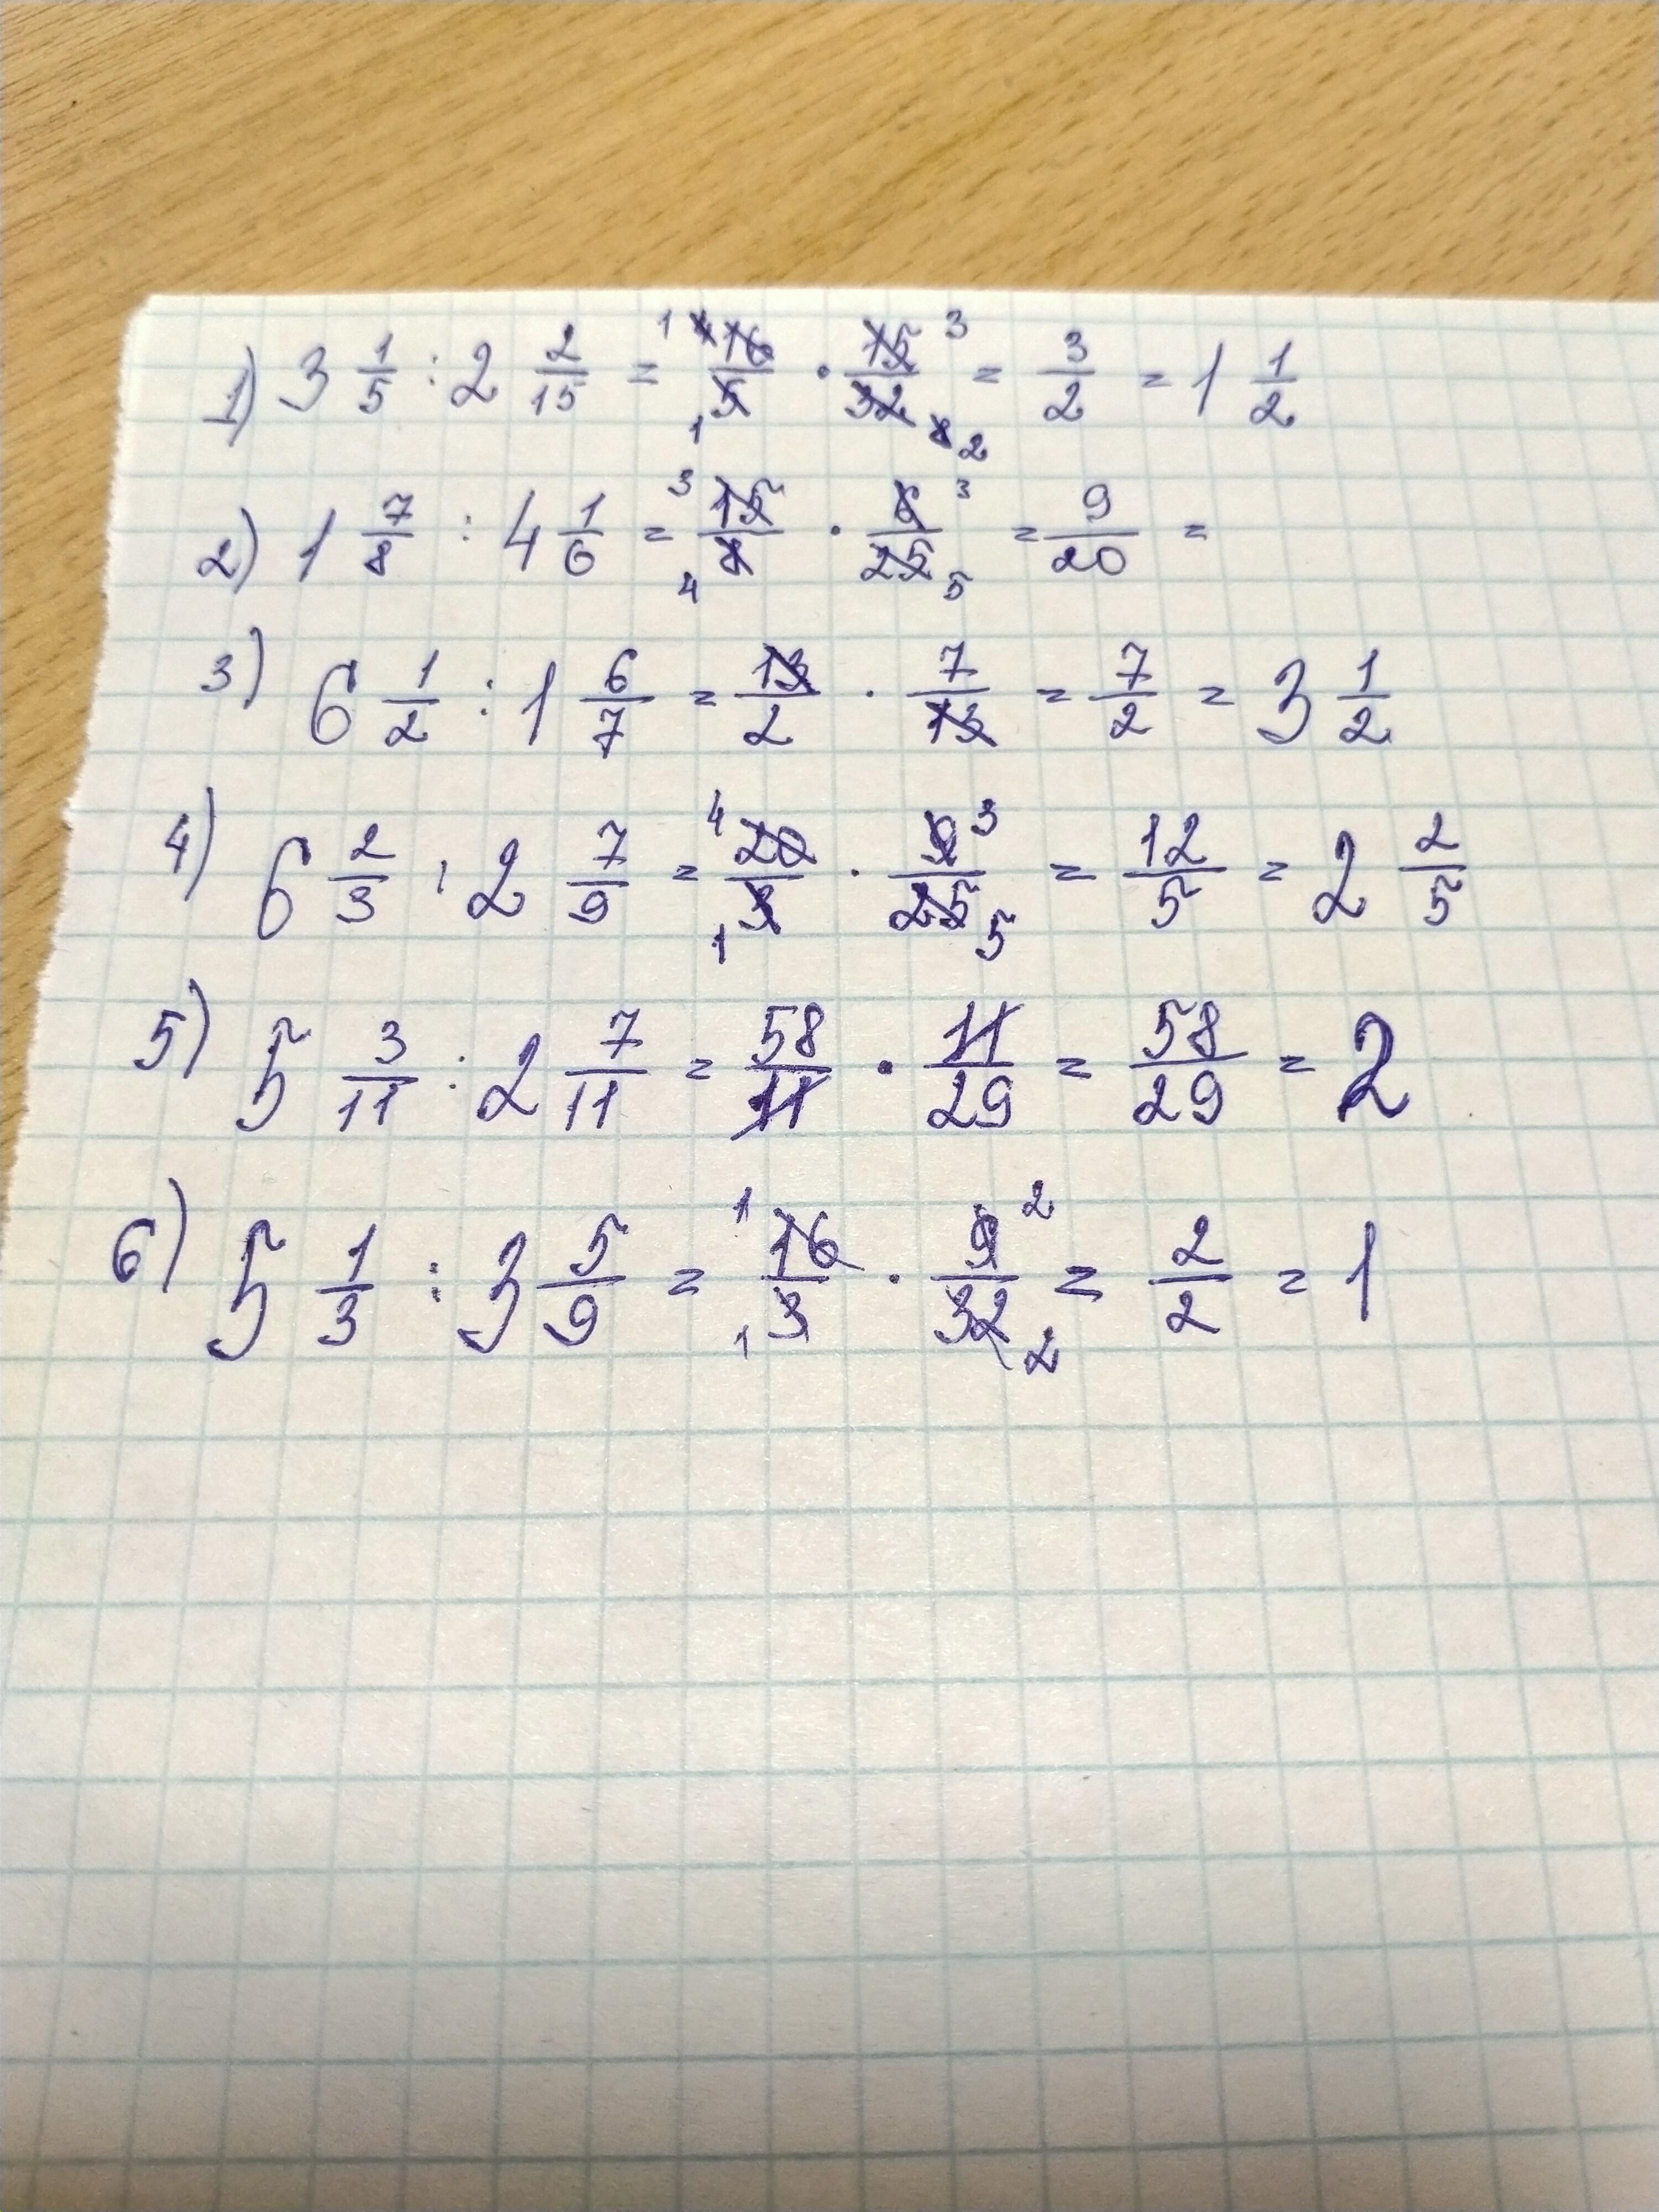 1) 3 1/5 : 2 2/15 = 1 4 16/5 1 · 15/32 3 8 2 = 3/2 = 1 1/2
2) 1 7/8 : 4 1/6 = 3 15/8 4 · 6/25 3 5 = 9/20 =
3) 6 1/2 : 1 6/7 = 13/2 · 7/13 = 7/2 = 3 1/2
4) 6 2/3 : 2 7/9 = 4 20/3 1 · 9/25 3 5 = 12/5 = 2 2/5
5) 5 3/11 : 2 7/11 = 58/11 · 11/29 = 58/29 = 2
6) 5 1/3 : 3 5/9 = 1 16/3 1 · 9/32 2 2 = 2/2 = 1